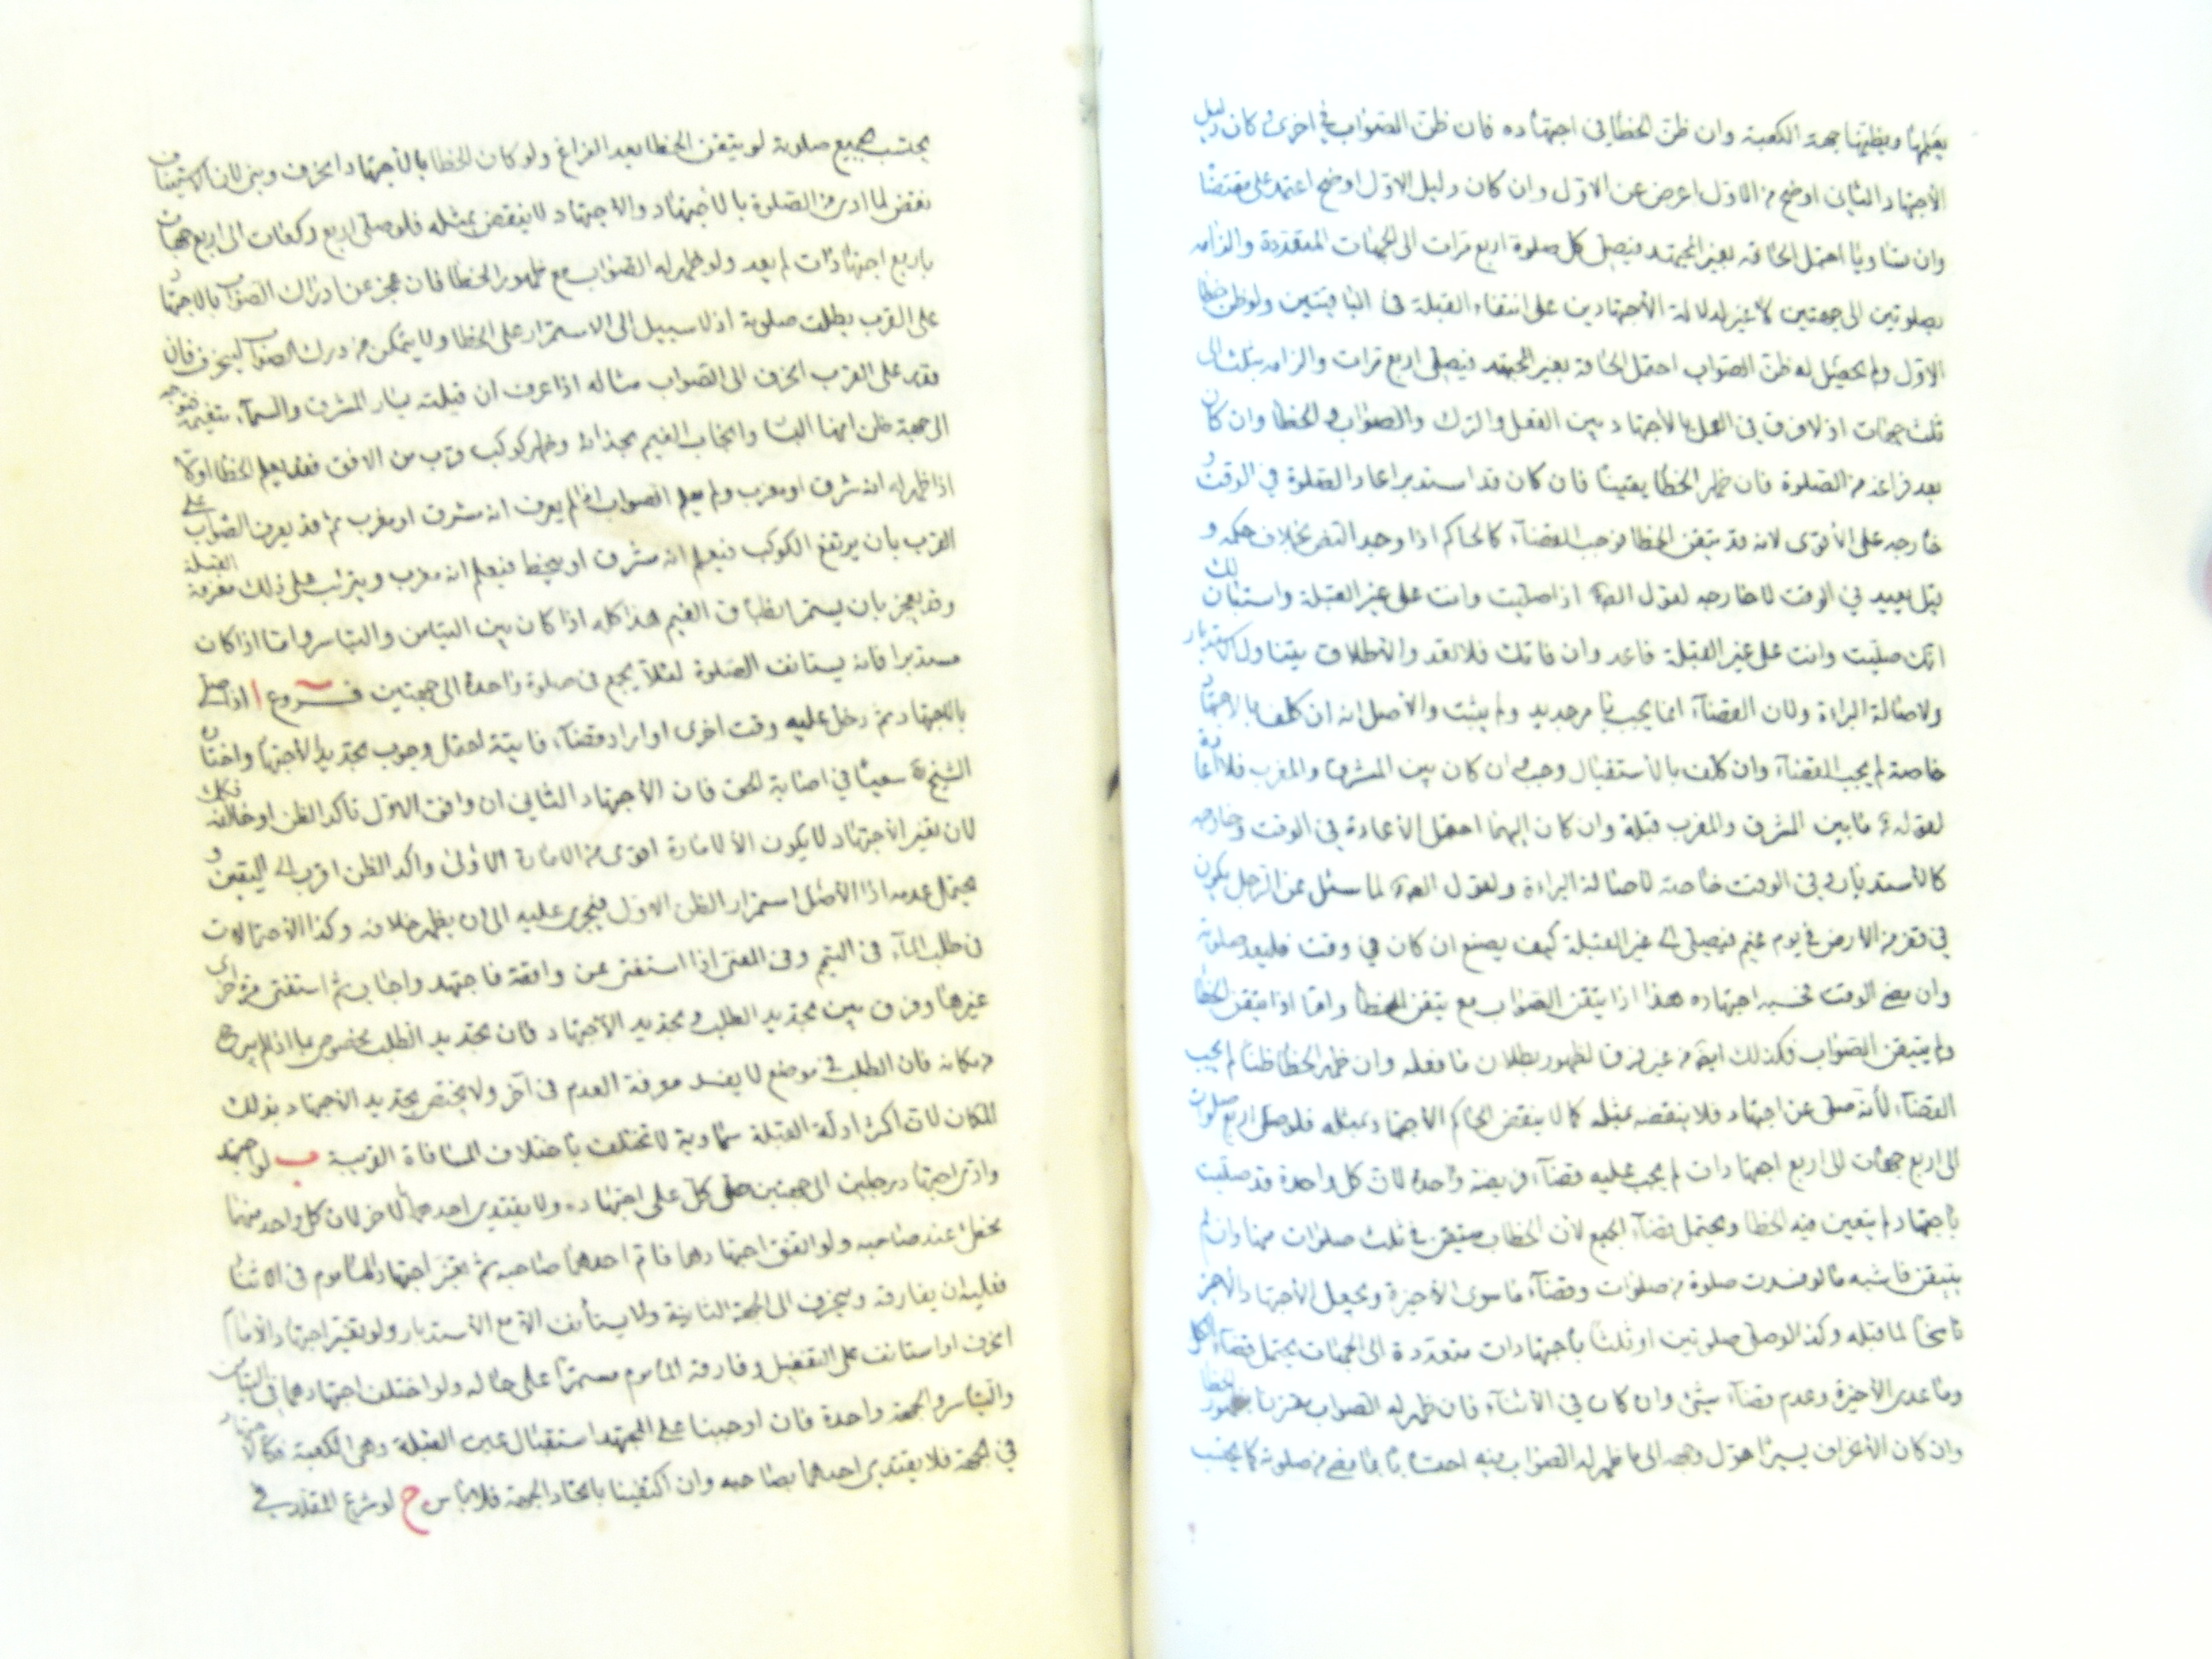 يعلمها ويظنها جهة الكعبة وان ظن الخطا في اجتهاده فان ظن الصواب في اخرى وكان دليل
الاجتهاد الثاني اوضح من الاول اعرض عن الاول وان كان دليل الاول اوضح اعتمد على مقتضاه
وان تساويا احتمل الحاقه بغير المجتهد فيصلي كل صلوة اربع مرات الى الجهات المتعددة والزامه
بصلوتين الى جهتين لا غير لدلالة الاجتهادين على انتفاء القبلة في الباقيتين ولو ظن خطا
الاول ولم يحصل له ظن الصواب احتمل الحاقه بغير المجتهد فيصلي اربع مرات والزامه بثلث الى
ثلث جهات اذ لا فرق في العمل بالاجتهاد بين الفعل والترك والصواب والخطا وان كان
بعد فراغه من الصلوة فان ظهر الخطا يقينا فان كان قد استدبر اعاد الصلوة في الوقت و
خارجه على الاقوى لانه قد تيقن الخطا فوجب القضآء كالحاكم اذا وجد النص بخلاف حكمه و
قيل يعيد في الوقت لا خارجه لقول الصادق اذا صليت وانت على غير القبلة واستبان لك
انك صليت وانت على غير القبلة فاعد وان فاتك فلا تعد والاطلاق يتناول الاستدبار
ولاصالة البراءة ولان القضآء انما يجب بامر جديد ولم يثبت والاصل انه ان كلف بالاجتهاد
خاصة لم يجب القضآء وان كلف بالاستقبال وجب وان كان بين المشرق والمغرب فلا اعادة
لقوله ع ما بين المشرق والمغرب قبلة وان كان اليهما احتمل الاعادة في الوقت وخارجه
كالاستدبار وفي الوقت خاصة لاصالة البراءة ولقول الصادق لما سئل عن الرجل يكون
في قفر من الارض في يوم غيم فيصلي الى غير القبلة كيف يصنع ان كان في وقت فليعد صلوته
وان مضى الوقت فحسبه اجتهاده هذا اذا تيقن الصواب مع تيقن الخطا واما اذا تيقن الخطا
ولم يتيقن الصواب فكذلك ايضا من غير فرق لظهور بطلان ما فعله وان ظهر الخطا ظنا لم يجب
القضآء لانه صلى عن اجتهاد فلا ينقضه بمثله كما لا ينقض الحاكم الاجتهاد بمثله فلو صلى اربع صلوات
الى اربع جهات الى اربع اجتهادات لم يجب عليه قضآء فريضة واحدة لان كل واحدة قد صليت
باجتهاد لم يتعين فيه الخطا ويحتمل قضآء الجميع لان الخطاب متيقن في ثلث صلوات منها وان لم
يتيقن فاشبه ما لو فسدت صلوة من صلوات وقضآء ما سوى الاخيرة ويجعل الاجتهاد الاخير
ناسخا لما قبله وكذا لو صلى صلوتين او ثلثا باجتهادات متعددة الى الجهات يحتمل قضآء الكل
وما عدى الاخيرة وعدم قضآء شئ وان كان في الاثنآء فان ظهر له الصواب مقترنا بظهور الخطا
وان كان الانحراف يسيرا حول وجهه الى ما ظهر له الصواب فيه احتسابا بما مضى من صلوته كما يحتسب
يحتسب بجميع صلوته لو تيقن الخطا بعد الفراغ ولو كان الخطا بالاجتهاد انحرف وبنى لان الاستيناف
نقض لما ادى من الصلوة بالاجتهاد والاجتهاد لا ينقض بمثله فلو صلى اربع ركعات الى اربع جهات
باربع اجتهادات لم يعد ولو ظهر له الصواب مع ظهور الخطا فان عجز عن ادراك الصواب بالاجتهاد
على القرب بطلت صلوته اذ لا سبيل الى الاستمرار على الخطا ولا يتمكن من درك الصواب لينحرف فان
قدر على القرب انحرف الى الصواب مثاله اذا عرف ان قبلته يسار المشرق والسمآء متغيمة فتوجه
الى جهة ظن انها اليسار وانجاب الغيم بحذائه وظهر كوكب قرب من الافق فقد يعلم الخطا اولا
اذا ظهر له انه شرق او مغرب ولم يعلم الصواب اذا لم يعرف انه مشرق او مغرب ثم قد يعرف الصواب على
القرب بان يرتفع الكوكب فيعلم انه مشرق او ينحط فيعلم انه مغرب ويترتب على ذلك معرفة القبلة
وقد يعجز بان يستمر انطباق الغيم هذا كله اذا كان بين التيامن والتياسر واما اذا كان
مستدبرا فانه يستانف الصلوة لئلا يجمع في صلوة واحدة الى جهتين فروع ا اذا صلى
بالاجتهاد ثم دخل عليه وقت اخرى او اراد قضآء فايتة احتمل وجوب تجديد الاجتهاد واختاره
الشيخ ره سعيا في اصابة الحق فان الاجتهاد الثاني ان وافق الاول تاكد الظن او خالفه فكك
لان تغير الاجتهاد لا يكون الا لامارة اقوى من الامارة الاولى واكد الظن اقرب الى اليقين و
يحتمل عدمه اذا الاصل استمرار الظن الاول فيجرى عليه الى ان يظهر خلافه وكذا الاحتمالات
في طلب المآء في التيمم وفي المفتى اذا استفتى عن واقعة فاجتهد واجاب ثم استفتى مرة اخرى
غيرها وفرق بين تجديد الطلب وتجديد الاجتهاد فان تجديد الطلب مخصوص بما اذا لم يبرح
من مكانه فان الطلب في موضع لا يفيد معرفة العدم في آخر ولا يختص تجديد الاجتهاد بذلك
المكان لان اكثر ادلة القبلة سماوية لا تختلف باختلاف المسافاة القريبة ب لو اجتهد
وادى اجتهاد رجلين الى جهتين صلى كل على اجتهاده ولا يقتدي احدهما بالاخر لان كل واحد منهما
مخطئ عند صاحبه ولو اتفق اجتهادهما فام احدهما صاحبه ثم تغير اجتهاد الماموم في الاثنا
فعليه ان يفارقه وينحرف الى الجهة الثانية ولا يستانف الا مع الاستدبار ولو تغير اجتهاد الامام
انحرف او استانف على التفصيل وفارقه الماموم مستمرا على حاله ولو اختلف اجتهادهما في التيامن
والتياسر والجهة واحدة فان اوجبنا على المجتهد استقبال عين القبلة وهي الكعبة فكالاجتهاد
في الجهة فلا يقتدي احدهما بصاحبه وان اكتفينا باتحاد الجهة فلا باس ج لو شرع المقلد في